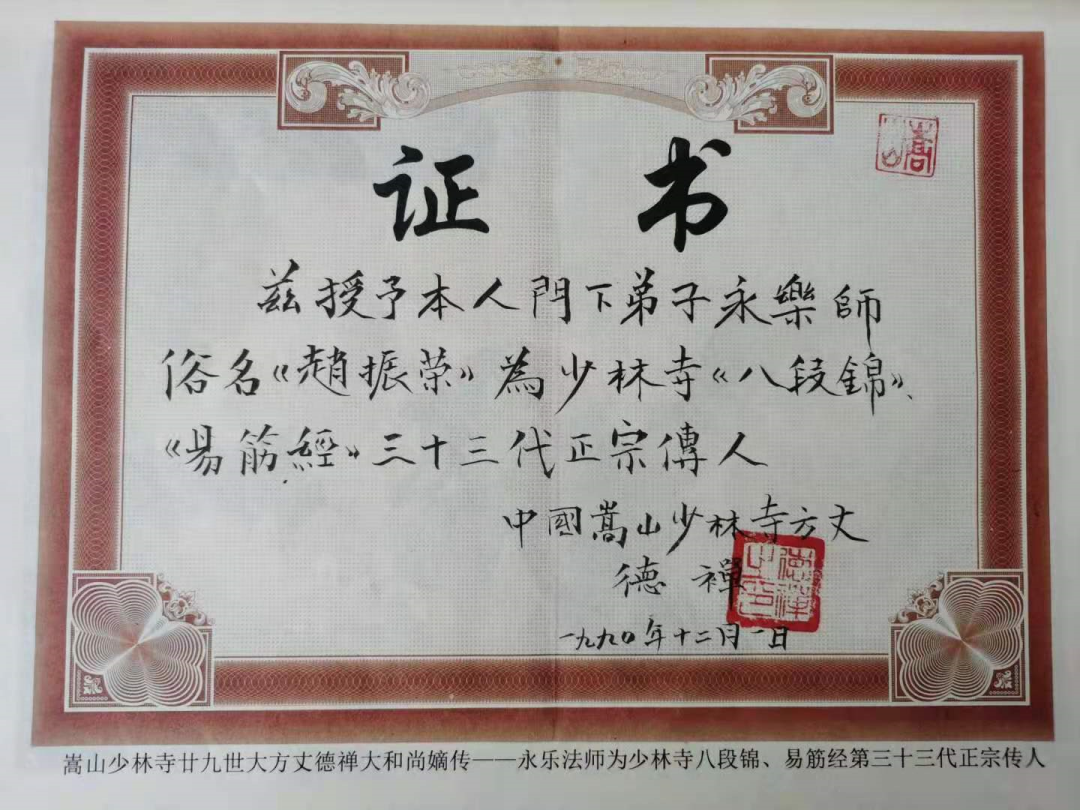 证 书
嵩山
茲授予本人門下弟子永樂師
俗名《趙振荣》為少林寺《八段錦》、
《易筋經》三十三代正宗傳人
中國嵩山少林寺方丈
德禪
德禪之印
一九九〇年十二月一日
嵩山少林寺廿九世大方丈德禅大和尚嫡传——永乐法师为少林寺八段锦、易筋经第三十三代正宗传人